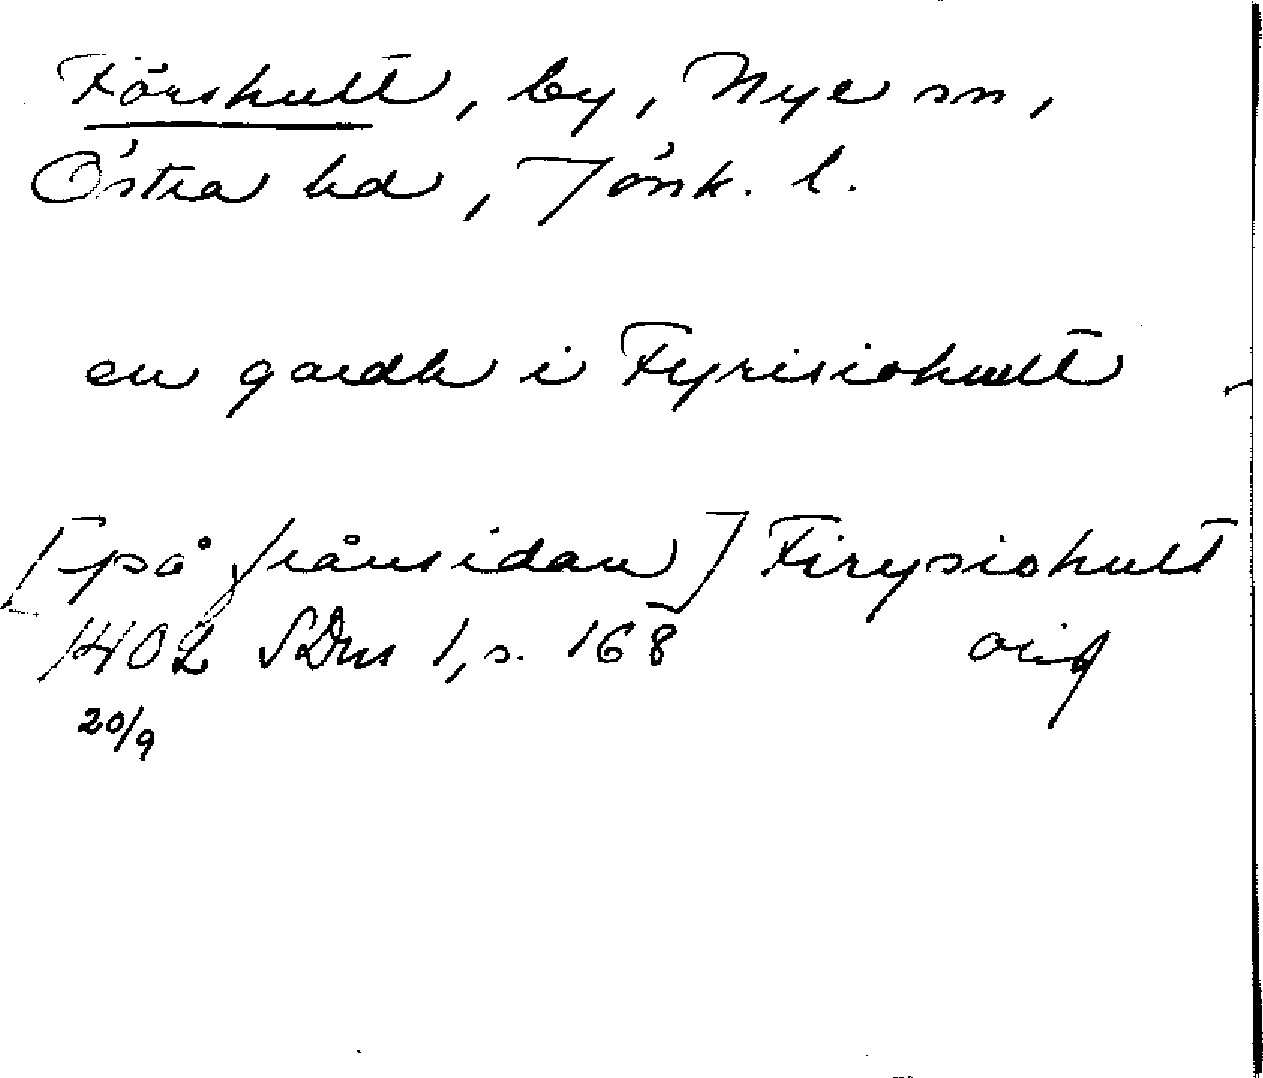 Förshult, by, Nye sn,
Östra hd, Jönk. l.
en gardh i Fyrisiohult
[på frånsidan] Firysiohult
1402 SDns 1, s. 168 orig
20/9